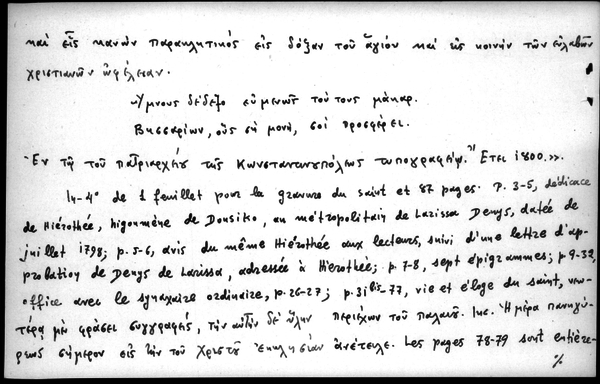 καὶ εἷς κανὼν παρακλητικὸς εἰς δόξαν τοῦ ἁγίου καὶ εἰς κοινὴν τῶν εὐλαβῶν
χριστιανῶν ὠφέλειαν.
Ὕμνους δέδεξο εὐμενῶς τούτους μάκαρ.
Βησσαρίων, οὓς σὴ μονή, σοὶ προσφέρει.
Ἐν τῷ τοῦ πατριαρχείου τῆς Κωνσταντινουπόλεως τυπογραφείῳ. Ἔτει 1800.».
In-4° de 1 feuillet pour la gravure du saint et 87 pages. P. 3-5, dédicace
de Hiérothée, higoumène de Dousiko, au métropolitain de Larissa Denys, datée de
juillet 1798; p. 5-6, avis du même Hiérothée aux lecteurs, suivi d'une lettre d'ap-
probation de Denys de Larissa, adressée à Hiérothée; p. 7-8, sept épigrammes; p. 9-32,
office avec le synaxaire ordinaire, p. 26-27; p. 31bis-77, vie et éloge du saint, νεω-
τέρᾳ μὲν φράσει συγγραφείς, τὴν αὐτὴν δὲ ὕλην περιέχων τοῦ παλαιοῦ. Inc. Ἡ μέρα πανηγύ-
ρεως σήμερον εἰς τὴν τοῦ Χριστοῦ Ἐκκλησίαν ἀνέτειλε. Les pages 78-79 sont entière-
%